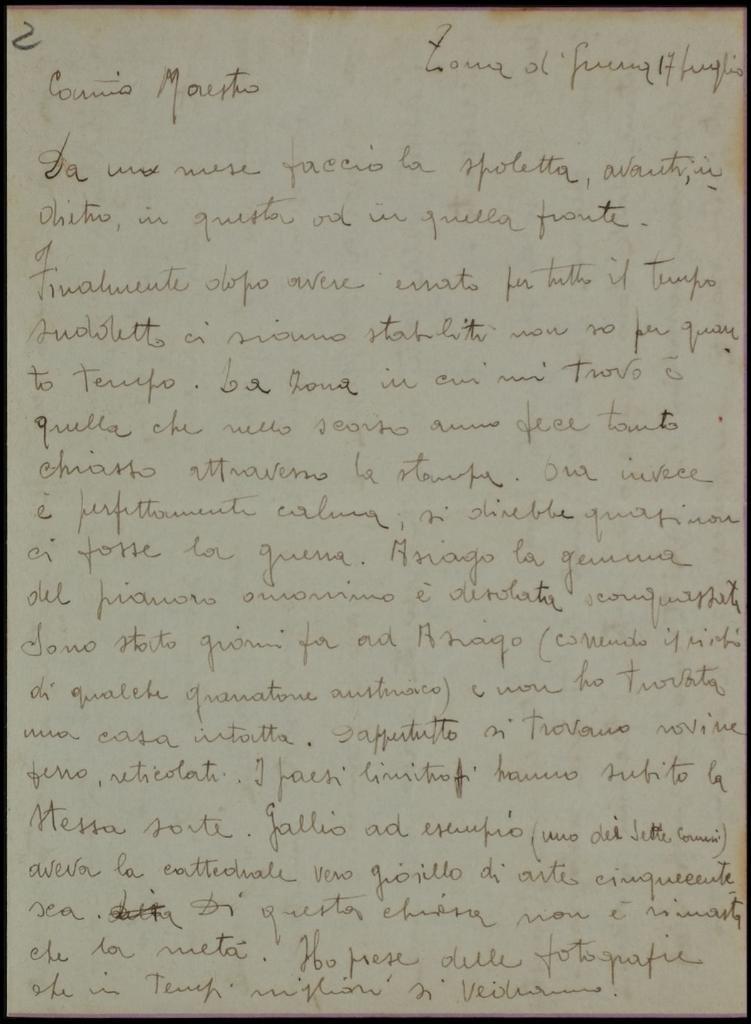 2
Zona di Guerra 17 luglio
Caro Maestro
Da un mese faccio la spoletta, avanti, in
dietro, in questa od in quella fronte.
Finalmente dopo avere errato per tutto il tempo
suddetto ci siamo stabiliti non so per quan
to tempo. La zona in cui mi trovo è
quella che nello scorso anno fece tanto
chiasso attraverso la stampa. Ora invece
è perfettamente calma, si direbbe quasi non
ci fosse la guerra. Asiago la gemma
del pianoro omonimo è desolata sconquassata
Sono stato giorni fa ad Asiago (correndo il rischio
di qualche granatone austriaco) e non ho trovata
una casa intatta. Dappertutto si trovano rovine
ferro, reticolati. I paesi limitrofi hanno subito la
stessa sorte. Gallio ad esempio (uno dei Sette Comuni)
aveva la cattedrale vero gioiello di arte cinquecente
sca. Di questa chiesa non è rimasta
che la metà. Ho prese delle fotografie
che in tempi migliori si vedranno.